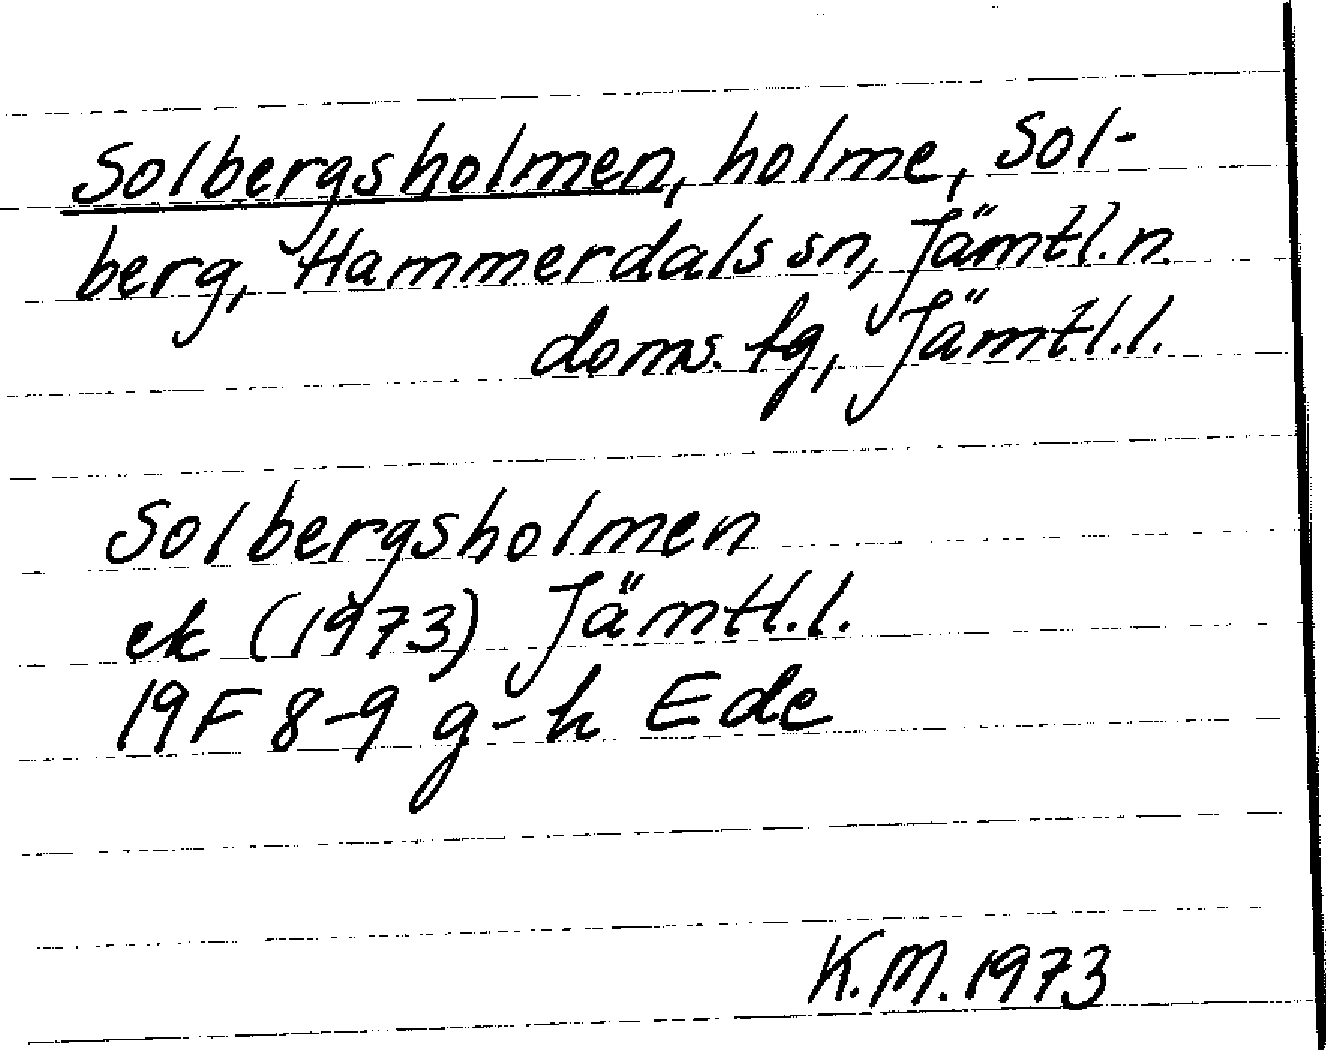 Solbergsholmen, holme, Sol-
berg, Hammerdals sn, Jämtl. n.
doms. tg, Jämtl.l.
Solbergsholmen
ek (1973) Jämtl.l.
19F 8-9 g-h Ede
K.M. 1973